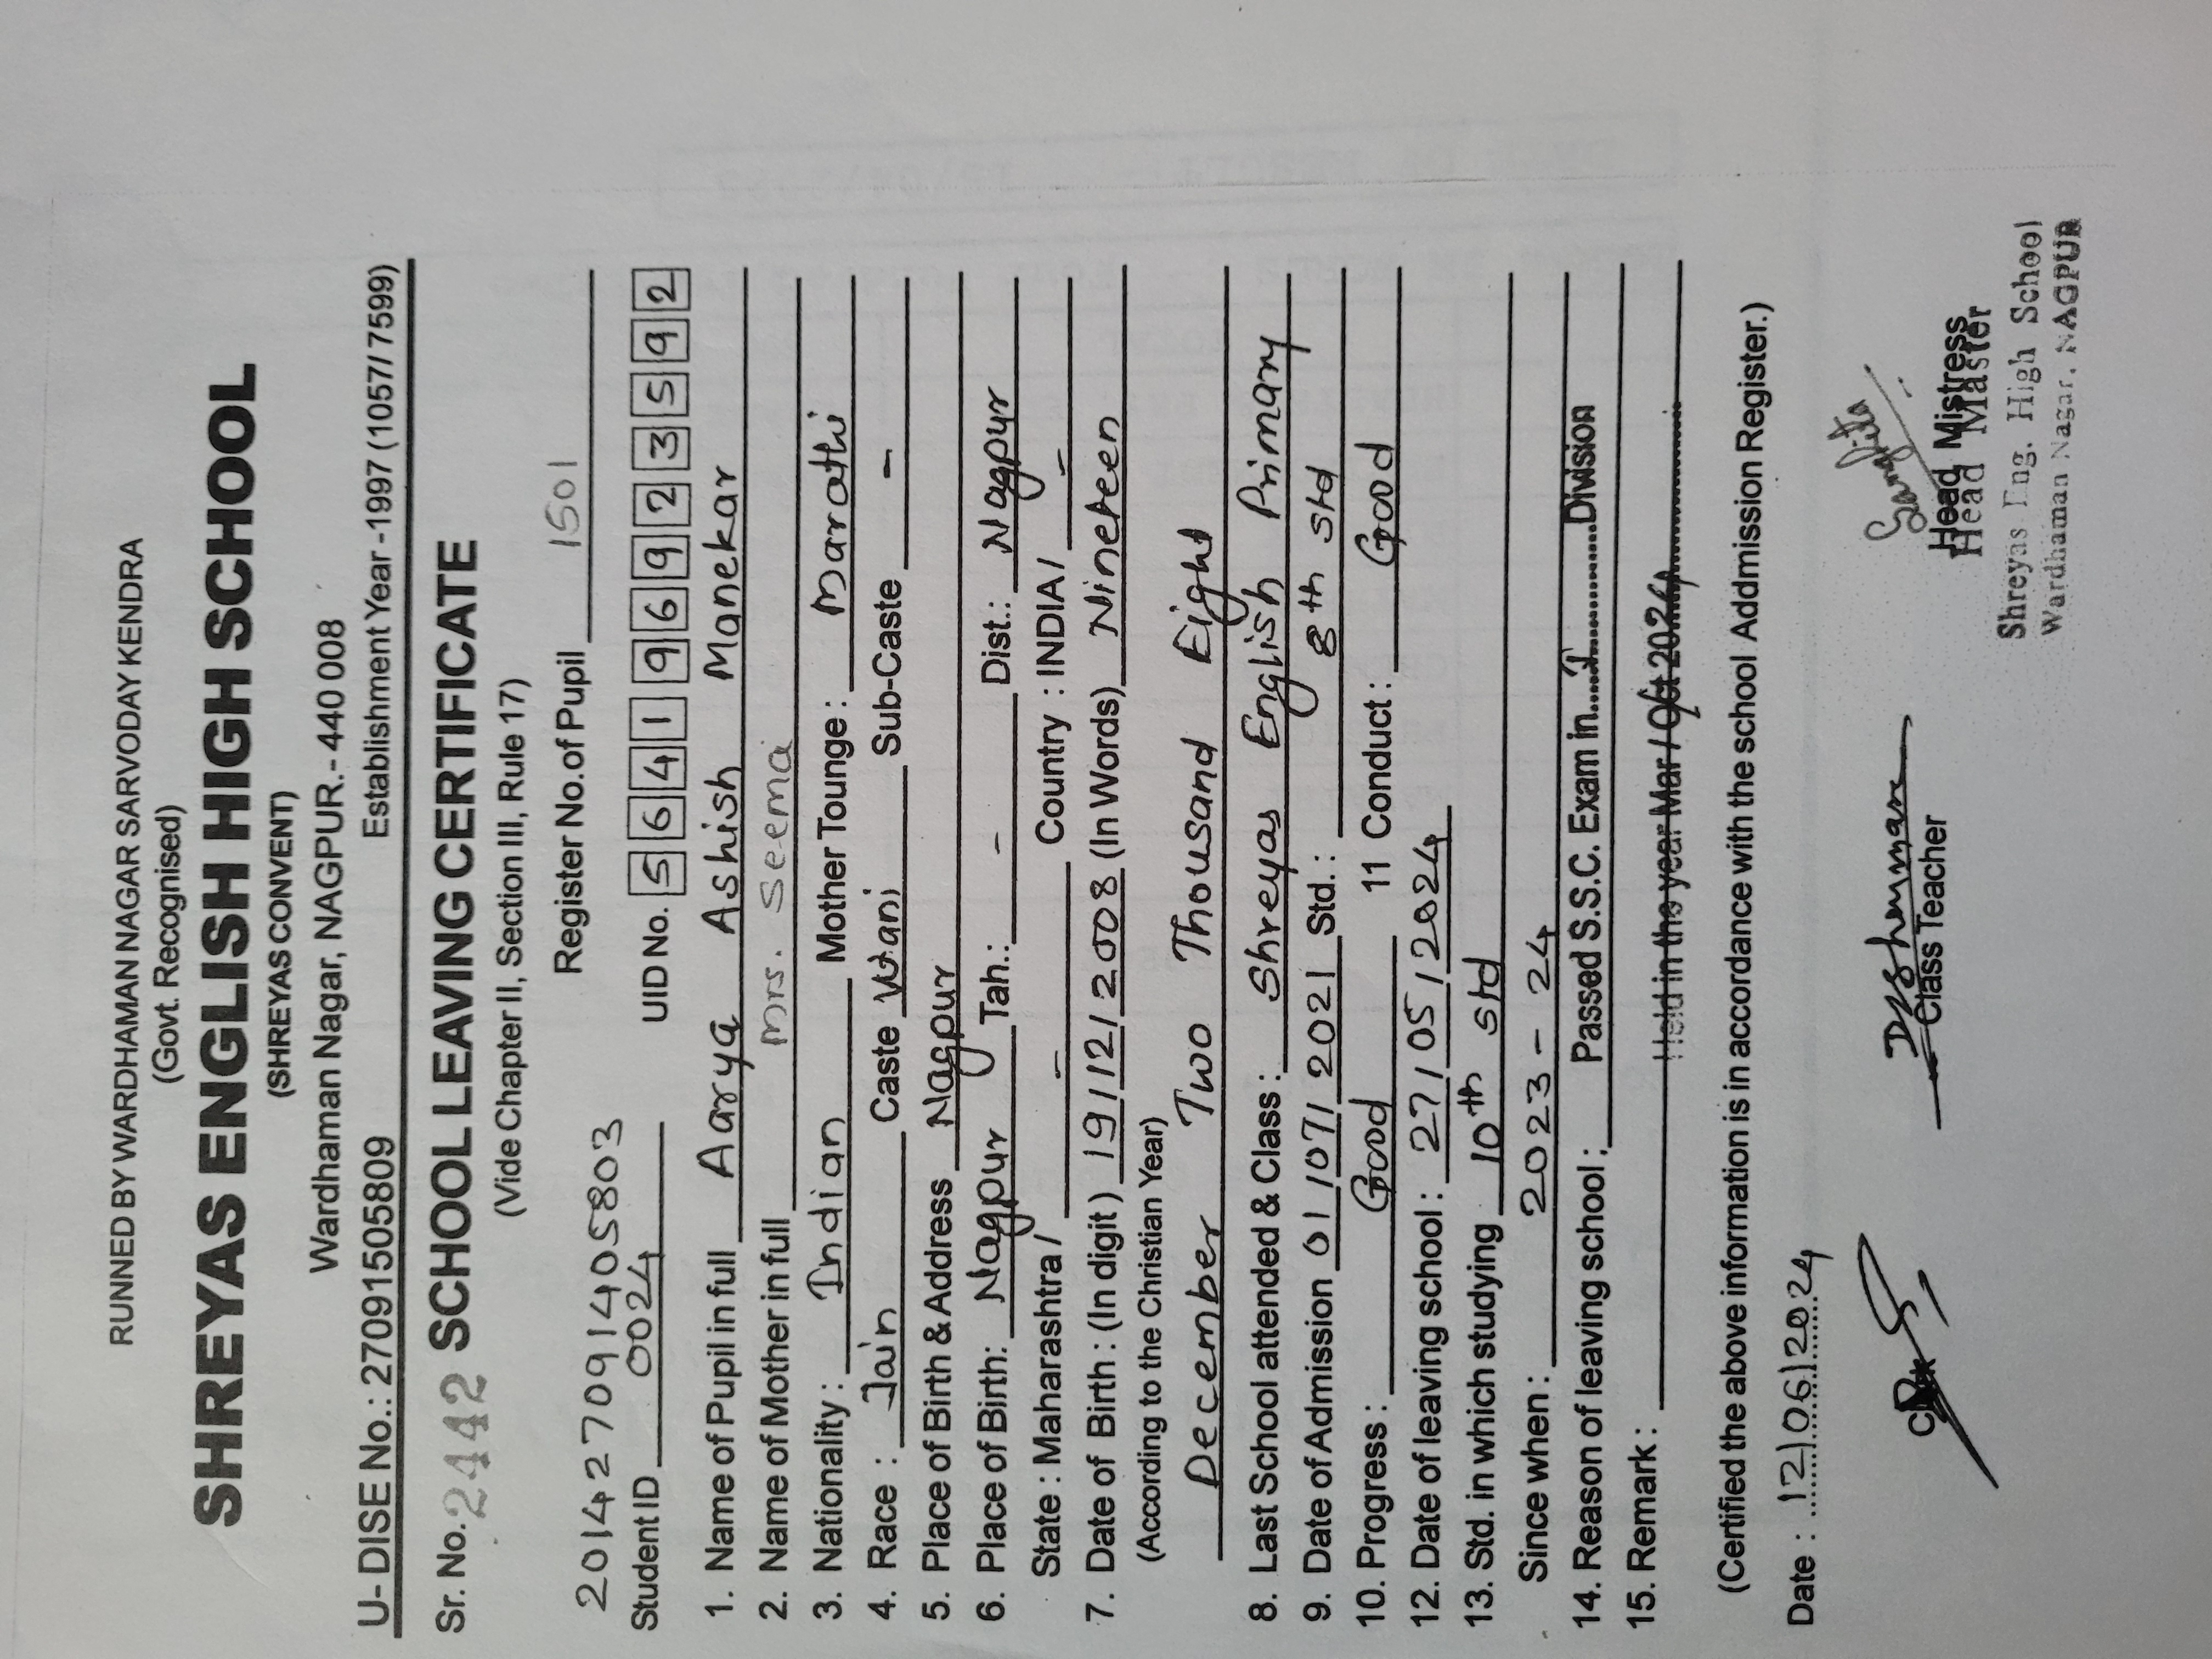 RUNNED BY WARDHAMAN NAGAR SARVODAY KENDRA
(Govt. Recognised)
SHREYAS ENGLISH HIGH SCHOOL
(SHREYAS CONVENT)
Wardhaman Nagar, NAGPUR.- 440 008
U- DISE No.: 27091505809 Establishment Year -1997 (1057/ 7599)
Sr. No. 2442 SCHOOL LEAVING CERTIFICATE
(Vide Chapter II, Section III, Rule 17)
Register No.of Pupil 1501
201427091405803
Student ID 0024 UID No. 564196923592
1. Name of Pupil in full Aarya Ashish Manekar
2. Name of Mother in full Mrs. Seema
3. Nationality : Indian Mother Tounge : Marathi
4. Race : Jain Caste Wani Sub-Caste –
5. Place of Birth & Address Nagpur
6. Place of Birth: Nagpur Tah.: – Dist.: Nagpur
State : Maharashtra/ – Country : INDIA / –
7. Date of Birth : (In digit ) 19/12/2008 (In Words) Nineteen
(According to the Christian Year)
December Two Thousand Eight
8. Last School attended & Class : Shreyas English Primary
9. Date of Admission 01/07/2021 Std.: 8th std
10. Progress : Good 11 Conduct : Good
12. Date of leaving school : 27/05/2024
13. Std. in which studying 10th std
Since when : 2023-24
14. Reason of leaving school ; Passed S.S.C. Exam in.....I............Division
15. Remark : Held in the year Mar / Oct 2024
(Certified the above information is in accordance with the school Addmission Register.)
Date : 12/06/2024
Class Teacher
Sangita
Head Mistress
Head Master
Shreyas Eng. High School
Wardhaman Nagar, NAGPUR